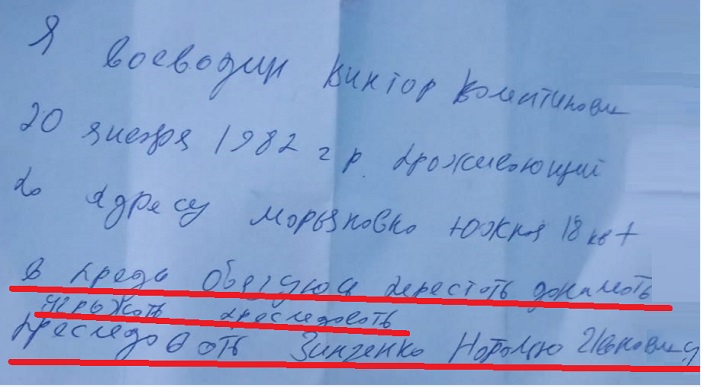 Я Воеводин Виктор Валентинови
20 января 1982 г р. проживающий
по адресу Морьяновка Южная 18 кв 1
в преди обязуюсь перестать донимать
угрожать преследовать
преследовать Зинченко Наталью Ивановну